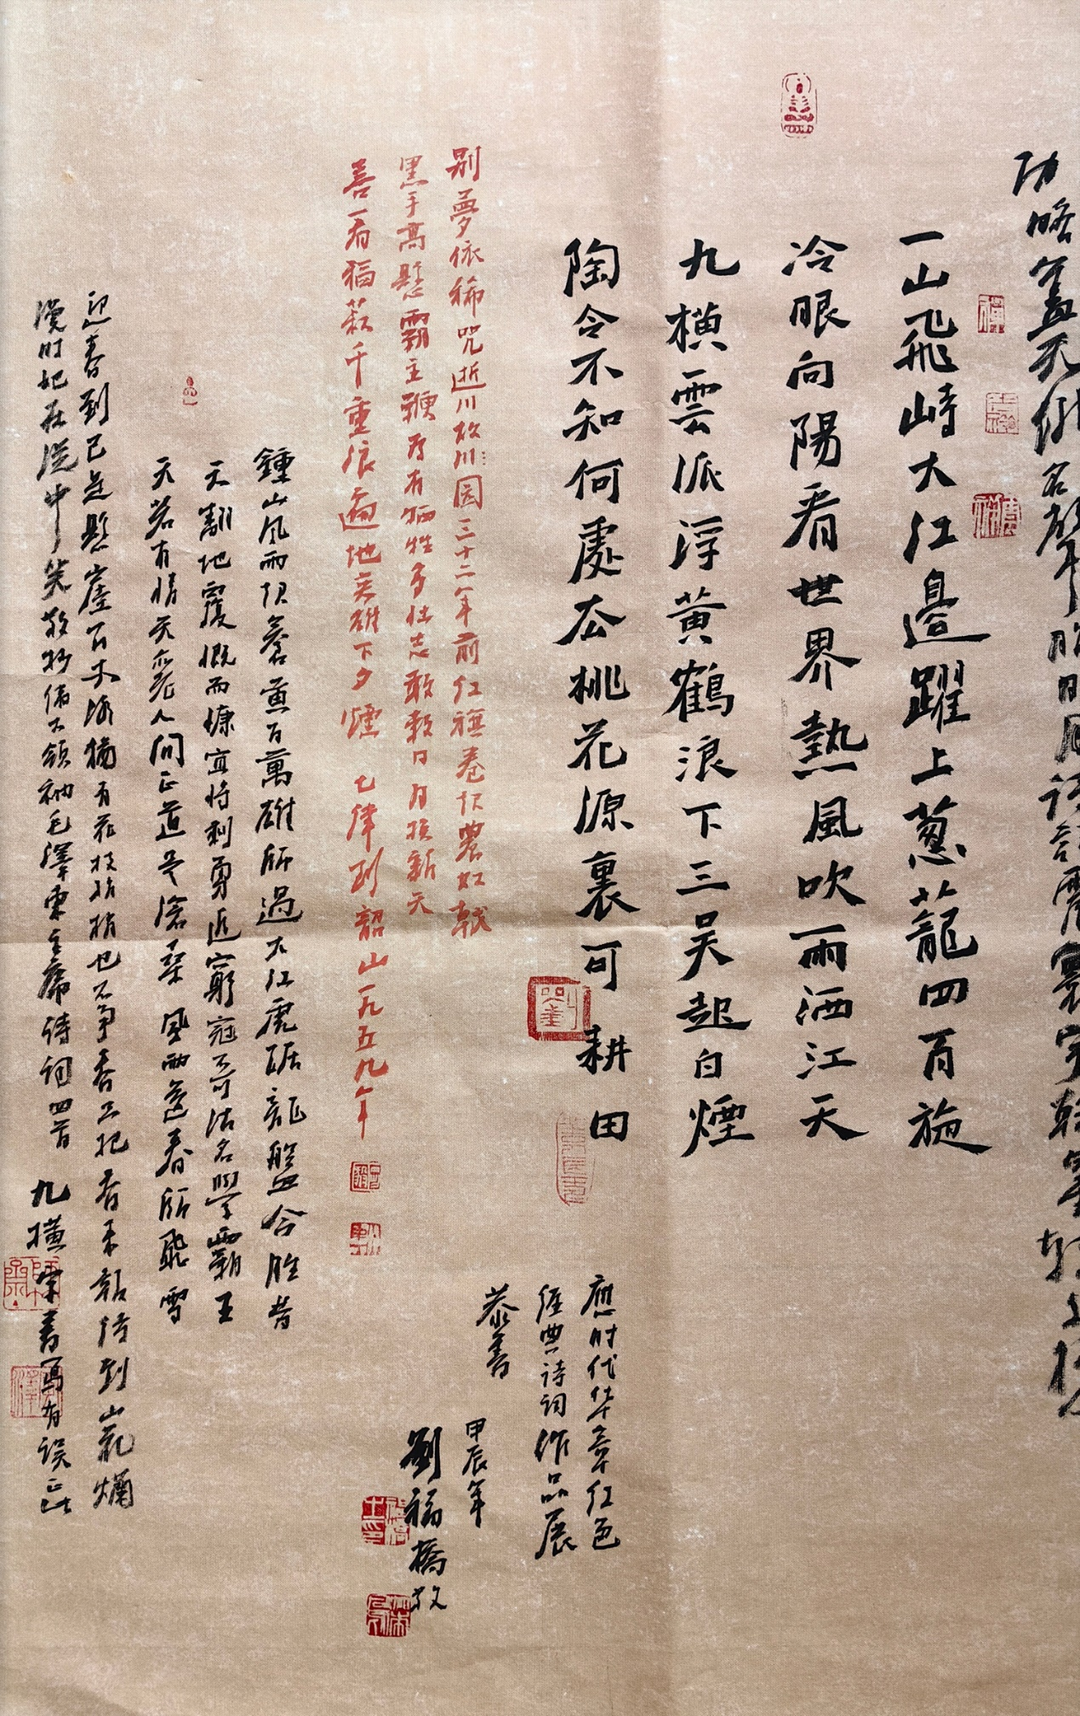 功略盖天地名
一山飛峙大江邊躍上葱蘢四百旋
冷眼向陽看世界熱風吹雨洒江天
九横雲派浮黄鶴浪下三吴起白煙
陶令不知何處去桃花源裏可耕田
應时代华章红色
经典诗词作品展
恭書
甲辰年
劉福橋敬
别夢依稀咒逝川故川园三十二年前红旗卷起農奴戟
黑手高懸霸主鞭为有牺牲多壮志敢教日月换新天
喜看稻菽千重浪遍地英雄下夕煙 七律到韶山一九五九年
鍾山風雨起蒼黄百萬雄师過大江虎踞龍盤今胜昔
天翻地覆慨而慷宜将剩勇追窮寇不可沽名學霸王
天若有情天亦老人间正道是滄桑 風雨送春归飛雪
迎春到已是懸崖百丈冰猶有花枝俏俏也不争春只把春来報待到山花爛
漫时她在丛中笑敬抄伟大领袖毛澤東主席诗词四首 九横 書寫有误正